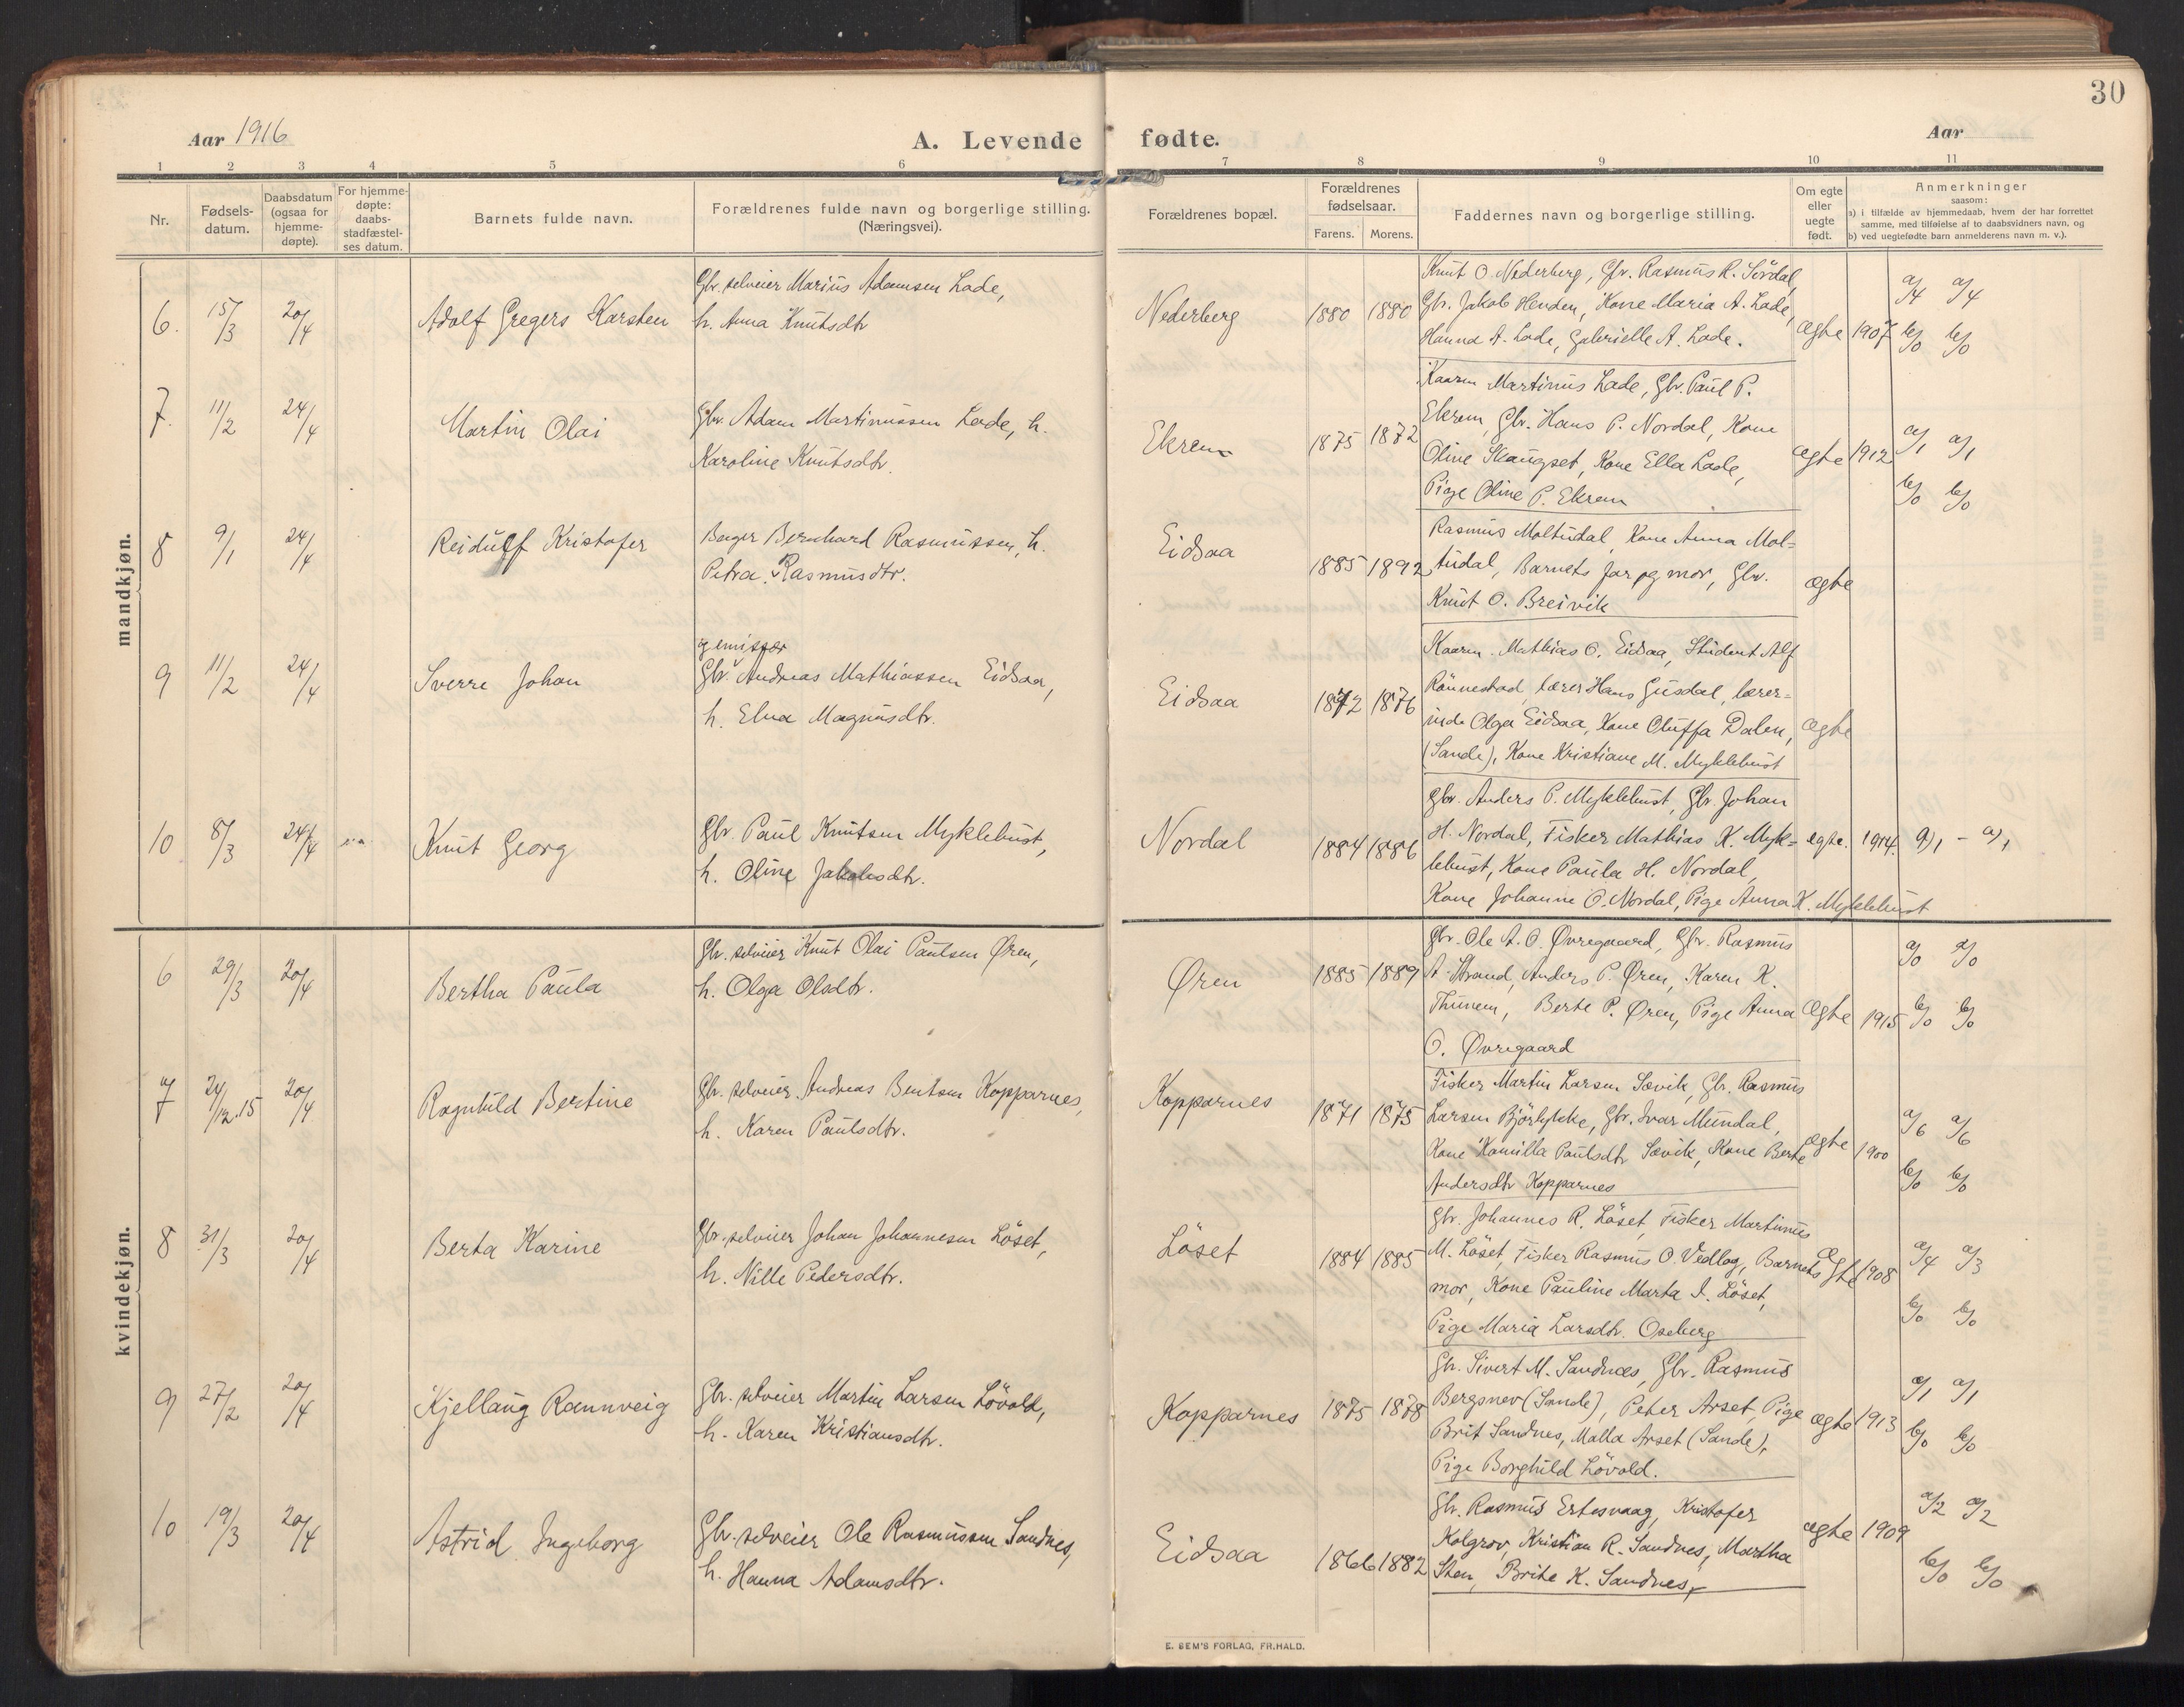 30
Aar 1916
A. Levende fødte.
Aar
1 2 3 4 5 6 7 8 9 10 11
Nr.
Fødsels-
datum.
Daabsdatum
(ogsaa for
hjemme-
døpte).
For hjemme-
døpte:
daabs-
stadfæstel-
ses datum.
Barnets fulde navn.
Forældrenes fulde navn og borgerlige stilling.
(Næringsvei).
Forældrenes bopæl.
Forældrenes
fødselsaar.
Farens. Morens.
Faddernes navn og borgerlige stilling.
Om egte
eller
uegte
født.
Anmerkninger
saasom:
a) i tilfælde av hjemmedaab, hvem der har forrettet
samme, med tilføielse af to daabsvidners navn, og
b) ved uegtefødte barn anmelderens navn m. v.).
mandkjøn.
6. 15/3 20/4 Adolf Gregers Karsten
Gbr. selveier Marius Adamsen Lade,
h. Anna Knutsdtr
Nederberg 1880 1880
Knut O. Nederberg, Gbr. Rasmus R. Sördal,
Gbr. Jakob Henden, Kone Maria A. Lade,
Hanna A. Lade, Gabrielle A. Lade.
ægte 1907 a/4 a/4
b/0 b/0
7. 11/2 24/4 Martin Olai
Gbr. Adam Martinussen Lade, h.
Karoline Knutsdtr.
Ekrem 1875 1872
Kaarm Martinus Lade, Gbr. Paul P.
Ekrem, Gbr. Hans P. Nordal, Kone
Oline Skaugset, Kone Ella Lade,
Pige Oline P. Ekrem
ægte 1912 a/1 a/1
b/0 b/0
8 9/1 24/4 Reidulf Kristofer
Bager Bernhard Rasmussen, h.
Petra Rasmusdtr.
Eidsaa 1885 1892
Rasmus Moltudal, Kone Anna Mol=
tudal, Barnets far og mor, Gbr.
Knut O. Breivik
ægte
9 11/2 24/4 Sverre Johan
og emissær
Gbr. Andreas Mathiassen Eidsaa,
h. Elna Magnusdtr.
Eidsaa 1872 1876
Kaarm. Mathias O. Eidsaa, Student Alf
Rönnestad, lærer Hans Gusdal, lærer=
inde Olga Eidsaa, Kone Oluffa Dalen,
(Sande), Kone Kristiane M. Myklebust
ægte
10 8/3 24/4 Knut Georg
Gbr. Paul Knutsen Myklebust,
h. Oline Jakobsdtr.
Nordal 1884 1886
Gbr. Anders P. Myklebust, Gbr. Johan
H. Nordal, Fisker Mathias K. Myk=
lebust, Kone Paula H. Nordal,
Kone Johanne O. Nordal, Pige Anna K. Myklebust
egte. 1914. a/1 - a/1
kvindekjøn.
6 29/3 20/4 Bertha Paula
Gbr. selveier Knut Olai Paulsen Øren,
h. Olga Olsdtr.
Øren 1885 1889
Gbr. Ole A. O. Øvregaard, Gbr. Rasmus
A. Strand, Anders P. Øren, Karen K.
Thunem, Berte P. Øren, Pige Anna
O. Øvregaard
ægte 1915 a/0 a/0
b/0 b/0
7 24/12.15 20/4 Ragnhild Bertine
Gbr. selveier Andreas Bentsen Kopparnes,
h. Karen Paulsdtr.
Kopparnes 1871 1875
Fisker Martin Larsen Sævik, Gbr. Rasmus
Larsen Björlykke, Gbr. Ivar Mundal,
Kone Kamilla Paulsdtr Sævik, Kone Berte
Andersdtr Kopparnes
ægte 1900 a/6 a/6
b/0 b/0
8 31/3 20/4 Berta Karine
Gbr. selveier Johan Johannesen Löset,
h. Nille Pedersdtr.
Löset 1884 1885
Gbr. Johannes R. Löset, Fisker Martinus
M. Löset, Fisker Rasmus O. Vedlog, Barnets
mor, Kone Pauline Marta I. Löset,
Pige Maria Larsdtr. Oseberg
ægte 1908 a/4 a/3
b/0 b/0
9 27/2 20/4 Kjellaug Rannveig
Gbr. selveier Martin Larsen Lövold,
h. Karen Kristiansdtr.
Kopparnes 1875 1878
Gbr. Sivert M. Sandnes, Gbr. Rasmus
Bergsnev (Sande), Peter Arset, Pige
Brit Sandnes, Malla Arset (Sande),
Pige Borghild Lövold.
ægte 1913 a/1 a/1
b/0 b/0
10 19/3 20/4 Astrid Ingeborg
Gbr. selveier Ole Rasmussen Sandnes,
h. Hanna Adamsdtr.
Eidsaa 1866 1882
Gbr. Rasmus Ertesvaag, Kristofer
Kolgrov, Kristian R. Sandnes, Martha
Sten, Brite K. Sandnes,
ægte 1909 a/2 a/2
b/0 b/0
E. SEM'S FORLAG, FR.HALD.